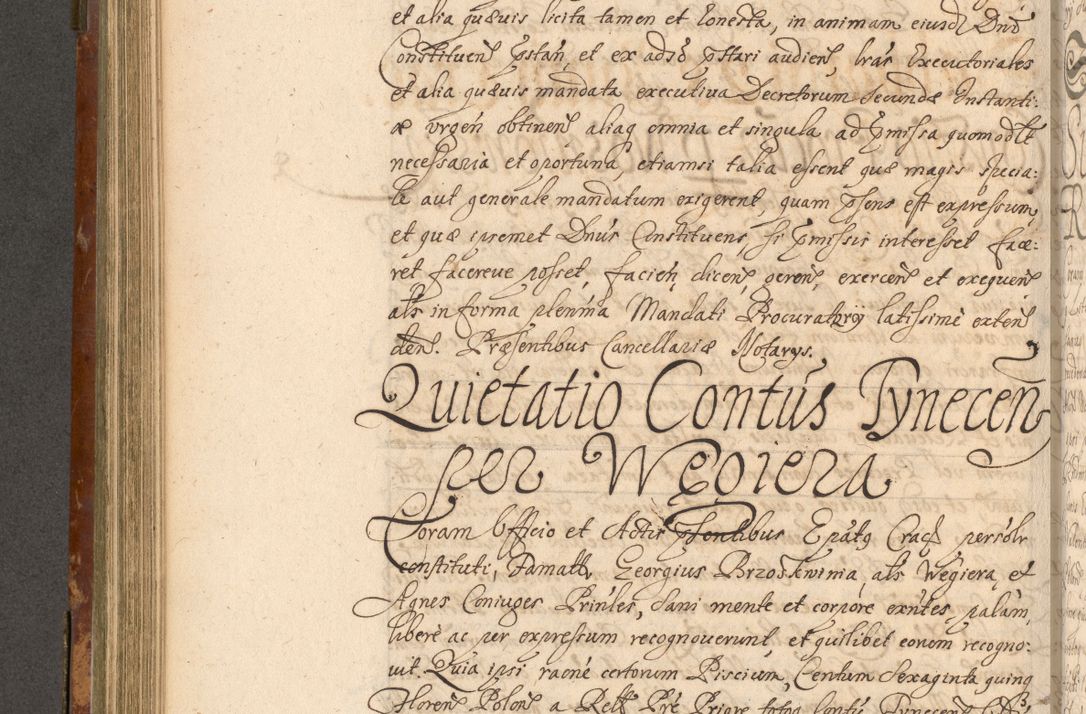 et alia quævis licita tamen et honesta, in animam eiusd Dni
Constituen pstan, et ex adso pstari audien, lras Executoriales
et alia quævis mandata executiva Decretorum Secundæ Instanti:
æ urgen obtinen aliaq omnia et singula ad pmissa quomodlt
necessaria et oportuna, etiamsi talia essent quæ magis specia:
le aut generale mandatum exigerent, quam psens est expressum,
et quæ ipsemet Dnus Constituens, si pmissis interesset face:
ret facereve posset, facien, dicen, geren, exercen et exequen
als in forma plenma Mandati Procuratorij latissime exten
den. Præsentibus Cancellariæ Notarys.
Quietatio Contus Tynecen
per Węgiera
Coram Officio et Actis psentibus Epatq Crac persolr
constituti, Famatt, Georgius Brzoskwinia, als Węgiera, et
Agnes Coniuges Prinles, Sani mente et corpore exntes, palam,
libere ac per expressum recognoverunt, et quilibet eorum recogno:
vit. Quia ipsi raone certorum Piscium, Centum Sexaginta quinq
Floren Polon a Rell Pre Priore totoq Contu Tynecen